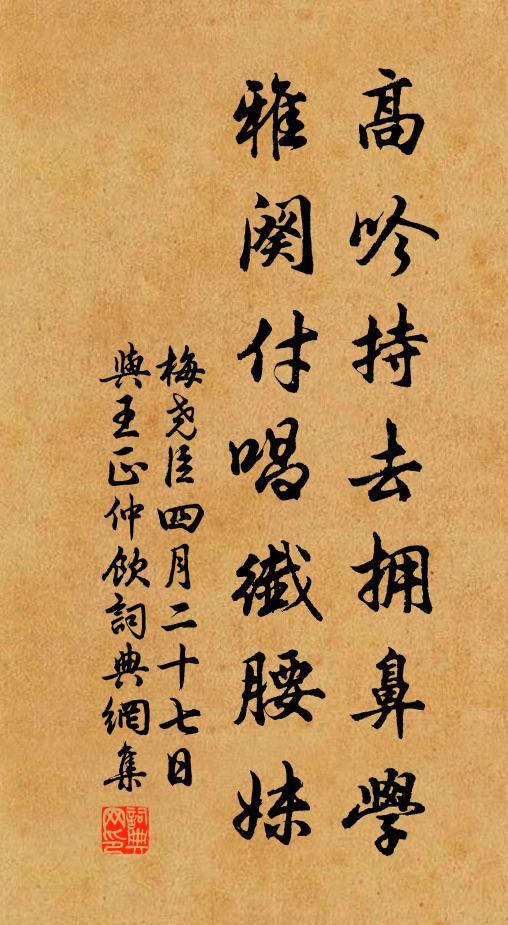 高吟持去拥鼻學
雅阕付唱纖腰妹
梅堯臣四月二十七日
與王正仲飲詞典網集
詞典网印